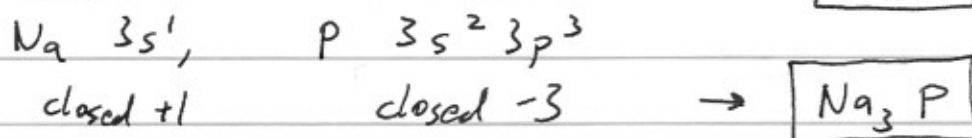 Na 3s¹, P 3s² 3p³
closed +1 closed -3 → Na₃ P